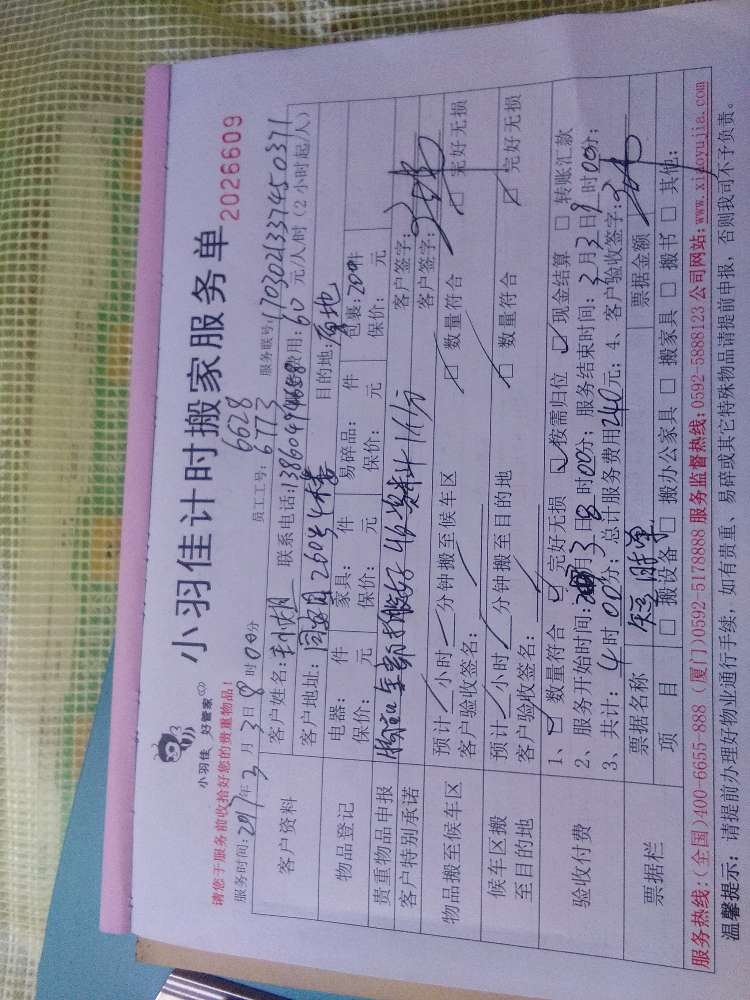 小羽佳计时搬家服务单
2026609
小羽佳 好管家
请您于服务前收拾好您的贵重物品!
6628
服务时间:2017年3月3日8时00分
员工工号:6773
服务联号:170302133745037 1
客户资料
客户姓名: 联系电话:1386049 费用:60元/人/时(2小时起/人)
客户地址: 260号4楼 目的地:原地
物品登记
电器: 件 家具: 件 易碎品: 件 包裹:20件
保价: 元 保价: 元 保价: 元 保价: 元
贵重物品申报
客户特别承诺
客户签字:
物品搬至候车区
预计 小时 分钟搬至候车区 □ 数量符合 □ 完好无损
客户验收签名: 客户签字:
候车区搬至目的地
预计 小时 分钟搬至目的地 □ 数量符合 □ 完好无损
客户验收签名:
验收付费
1、□ 数量符合 □ 完好无损 □ 按需归位 □ 现金结算 □ 转账汇款
2、服务开始时间: 月3日8时00分; 服务结束时间:3月3日 时00分;
3、共计:4时00分; 总计服务费用240元; 4、客户验收签字:
票据栏
票据名称 票据金额
项 目 □ 搬设备 □ 搬办公家具 □ 搬家具 □ 搬书 □ 其他:
服务热线:(全国)400-6655-888 (厦门)0592-5178888 服务监督热线:0592-5888123 公司网站:www.xiaoyujia.com
温馨提示:请提前办理好物业通行手续,如有贵重、易碎或其它特殊物品请提前申报,否则我司不予负责。